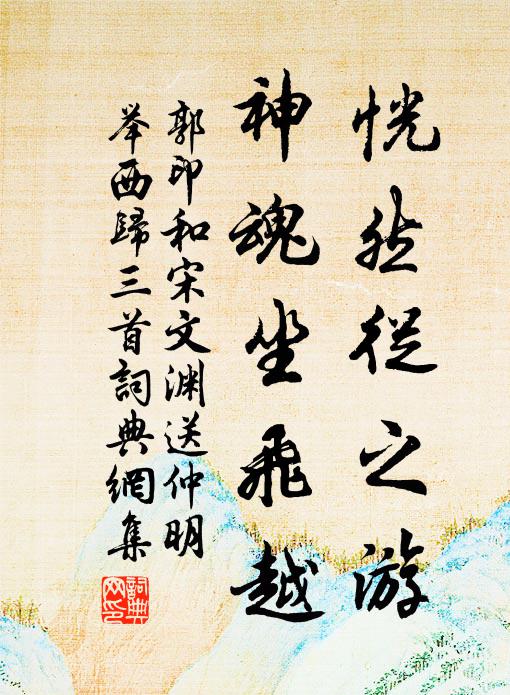 恍然從之游
神魂坐飛越
郭印和宋文渊送仲明
举西歸三首詞典網集
詞典
网色